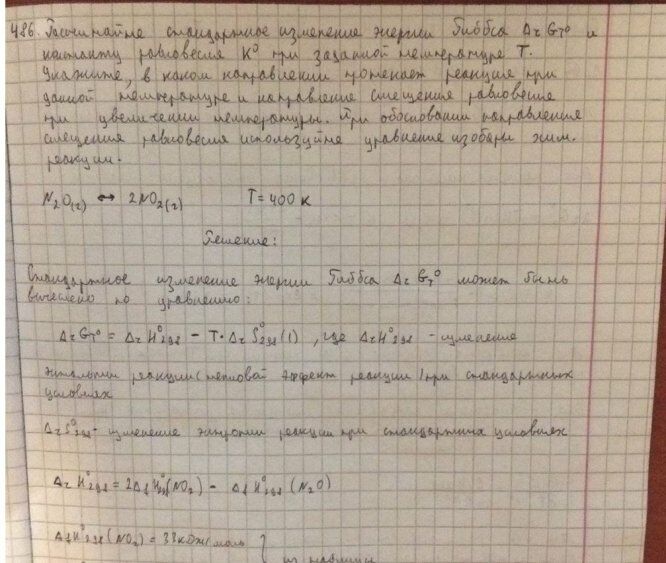 486. Рассчитайте стандартное изменение энергии Гиббса ΔrGT° и
константу равновесия K° при заданной температуре T.
Укажите, в каком направлении протекает реакция при
данной температуре и направление смещения равновесие
при увеличении температуры. При обосновании направления
смещения равновесия используйте уравнение изобары хим.
реакции.
N2O(г) ↔ 2NO2(г) T = 400 K
Решение:
Стандартное изменение энергии Гиббса ΔrGT° может быть
вычислено по уравнению:
ΔrGT° = ΔrH°298 - T·ΔrS°298 (1), где ΔrH°298 - изменение
энтальпии реакции (тепловой эффект реакции) при стандартных
условиях
ΔrS°298 - изменение энтропии реакции при стандартных условиях
ΔrH°298 = 2ΔfH°298(NO2) - ΔfH°298(N2O)
ΔfH°298(NO2) = 33 кДж/моль
из таблицы